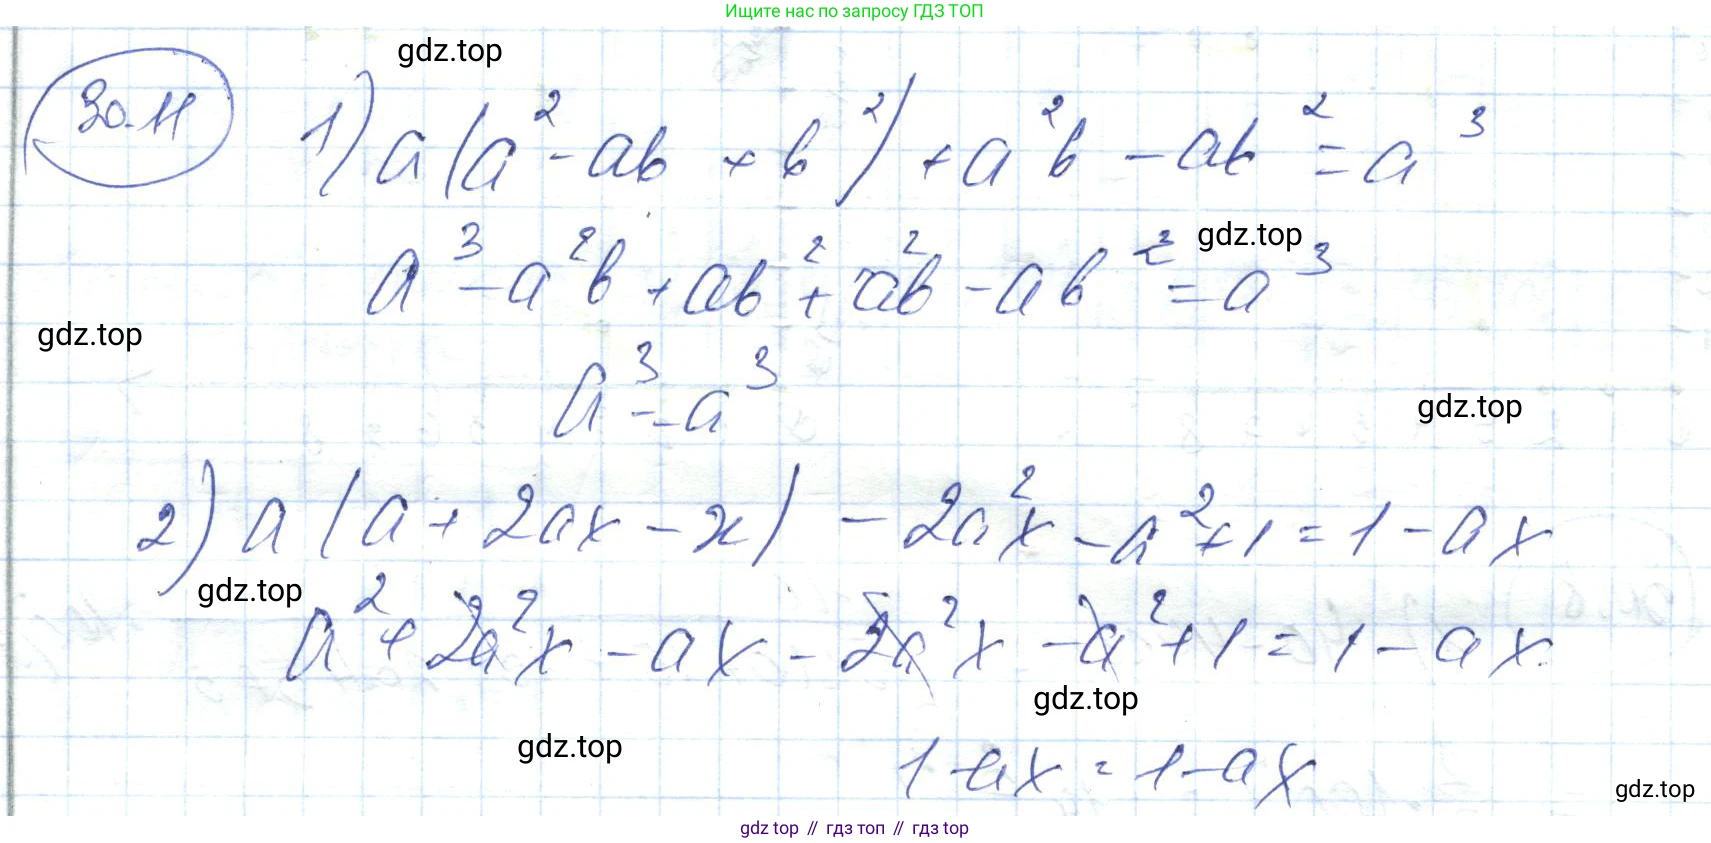 Ищите нас по запросу ГДЗ ТОП
gdz.top
30.11 1) a(a² - ab + b²) + a²b - ab² = a³
gdz.top
a³ - a²b + ab² + a²b - ab² = a³
gdz.top
a³ = a³
gdz.top
2) a(a + 2ax - x) - 2a²x - a² + 1 = 1 - ax
gdz.top
a² + 2a²x - ax - 2a²x - a² + 1 = 1 - ax
gdz.top
gdz.top
1 - ax = 1 - ax
gdz.top
gdz top // гдз топ // gdz top